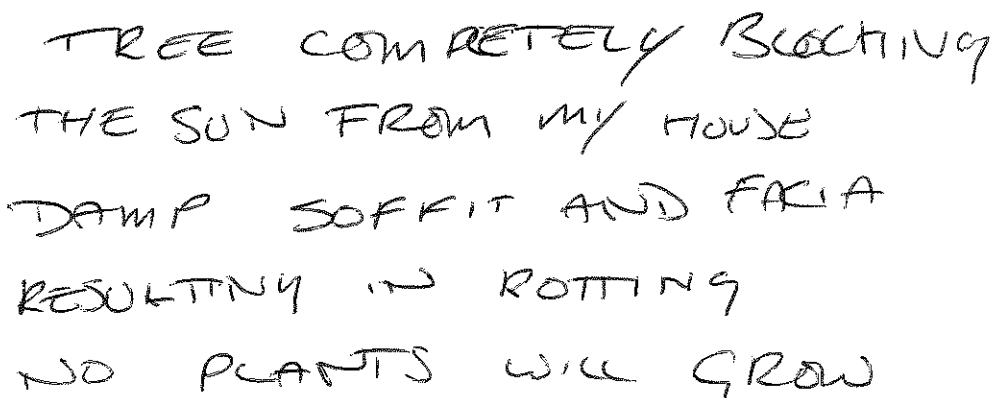 TREE COMPLETELY BLOCKING
THE SUN FROM MY HOUSE
DAMP SOFFIT AND FACIA
RESULTING IN ROTTING
NO PLANTS WILL GROW